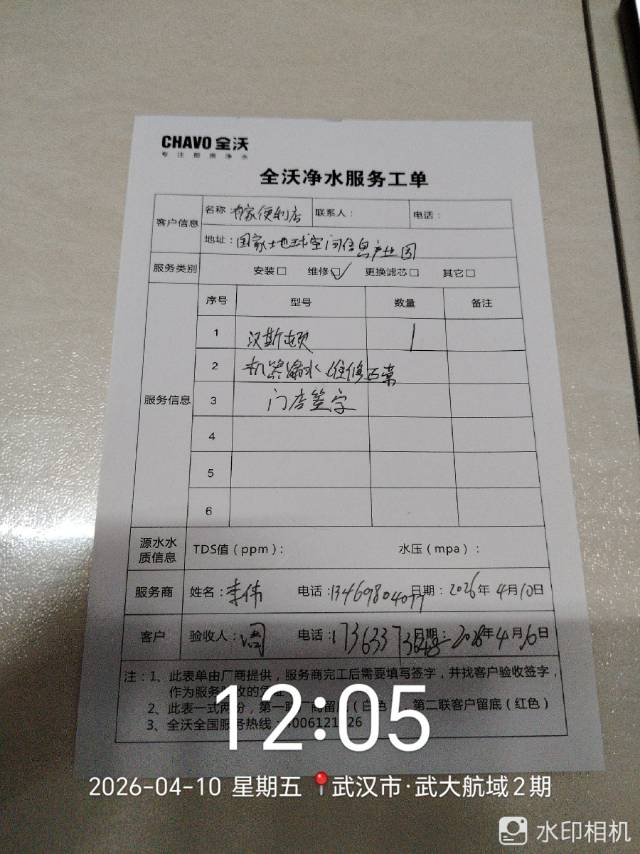 CHAVO 全沃
专注厨房净水
全沃净水服务工单
客户信息 名称: 便利店 联系人: 电话:
地址: 国家地球空间信息产业园
服务类别 安装□ 维修☑ 更换滤芯□ 其它□
服务信息 序号 型号 数量 备注
1 汉斯顿 1
2 机器漏水 维修正常
3 门店签字
4
5
6
源水水质信息 TDS值（ppm）: 水压（mpa）:
服务商 姓名: 李伟 电话: 13469804079 日期: 2026年4月10日
客户 验收人: 周 电话: 日期: 2026年4月 日
注: 1、此表单由厂商提供，服务商完工后需要填写签字，并找客户验收签字，
作为服务验收的凭证
2、此表一式两份，第一联 商留底（白色），第二联客户留底（红色）
3、全沃全国服务热线: 26
12:05
2026-04-10 星期五 武汉市·武大航域2期
水印相机